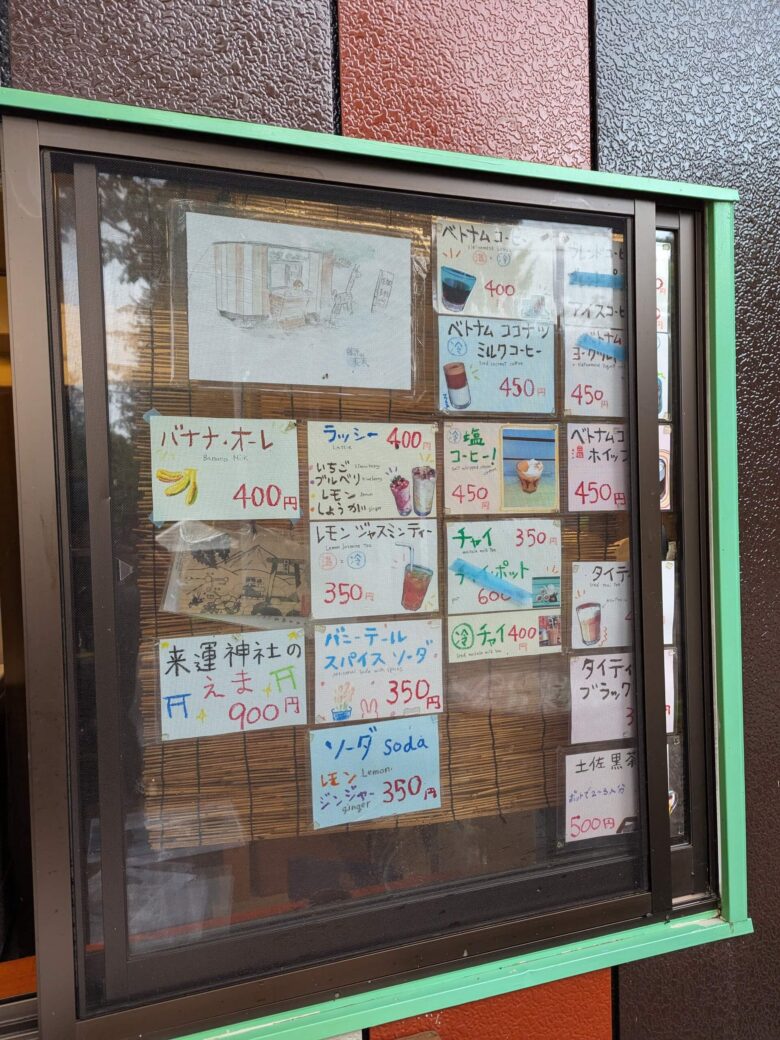 ベトナムコーヒー
温・冷
400
ベトナム ココナツ
冷 ミルクコーヒー
Iced coconut coffee
450円
アイスコーヒ
ベトナム
ヨーグルト
450円
バナナ・オーレ
Banana Milk
400円
ラッシー 400円
Lassie
いちご strawberry
ブルベリ blueberry
レモン lemon
しょうが ginger
冷 塩
コーヒー!
450円
ベトナムコ
温 ホイップ
450円
レモン ジャスミンティー
Lemon Jasmine Tea
温・冷
350円
チャイ 350円
masala milk Tea
チャイ・ポット
600
冷 チャイ 400円
Iced masala milk tea
タイティ
タイティ
ブラック
3
土佐黒茶
ポットで2〜3人分
500円
来運神社の
えま
900円
バニーテール
スパイスソーダ
350円
ソーダ soda
レモン Lemon
ジンジャー
ginger
350円